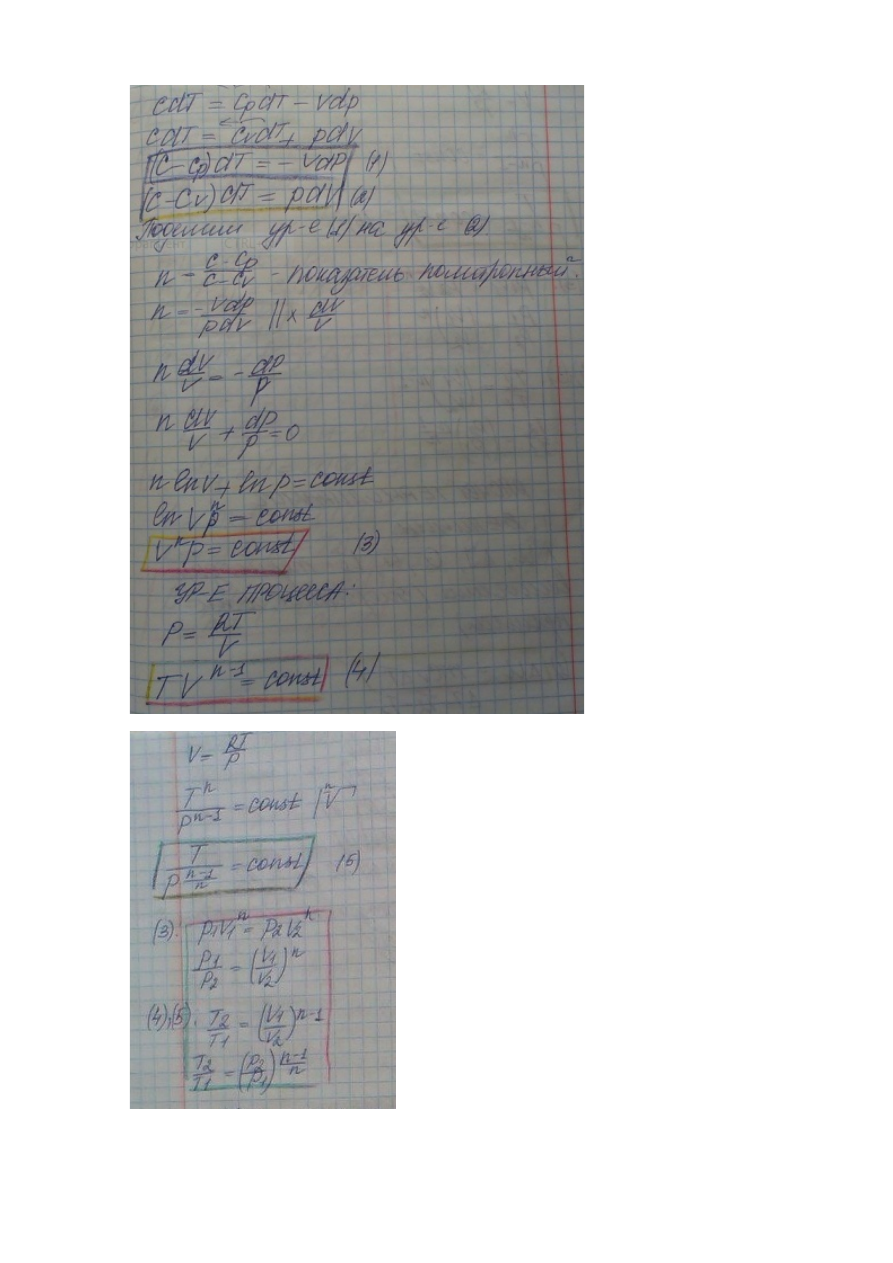 cdT = CpdT − vdp
cdT = CvdT + pdv
(C−Cp)dT = − vdp (1)
(C−Cv)dT = pdv (2)
Поделим ур-е (1) на ур-е (2)
n = C−Cp / C−Cv - показатель политропный.
n = −vdp / pdv || × dv / v
n dv/v = − dp/p
n dv/v + dp/p = 0
n ln v + ln p = const
ln Vⁿp = const
Vⁿp = const (3)
УР-Е ПРОЦЕССА:
P = RT/V
TVⁿ⁻¹ = const (4)
V = RT/P
Tⁿ/Pⁿ⁻¹ = const |ⁿ√
T / P^(n−1/n) = const (5)
(3). P₁V₁ⁿ = P₂V₂ⁿ
P1/P2 = (V1/V2)ⁿ
(4),(5). T2/T1 = (V1/V2)ⁿ⁻¹
T2/T1 = (P2/P1)^(n−1/n)